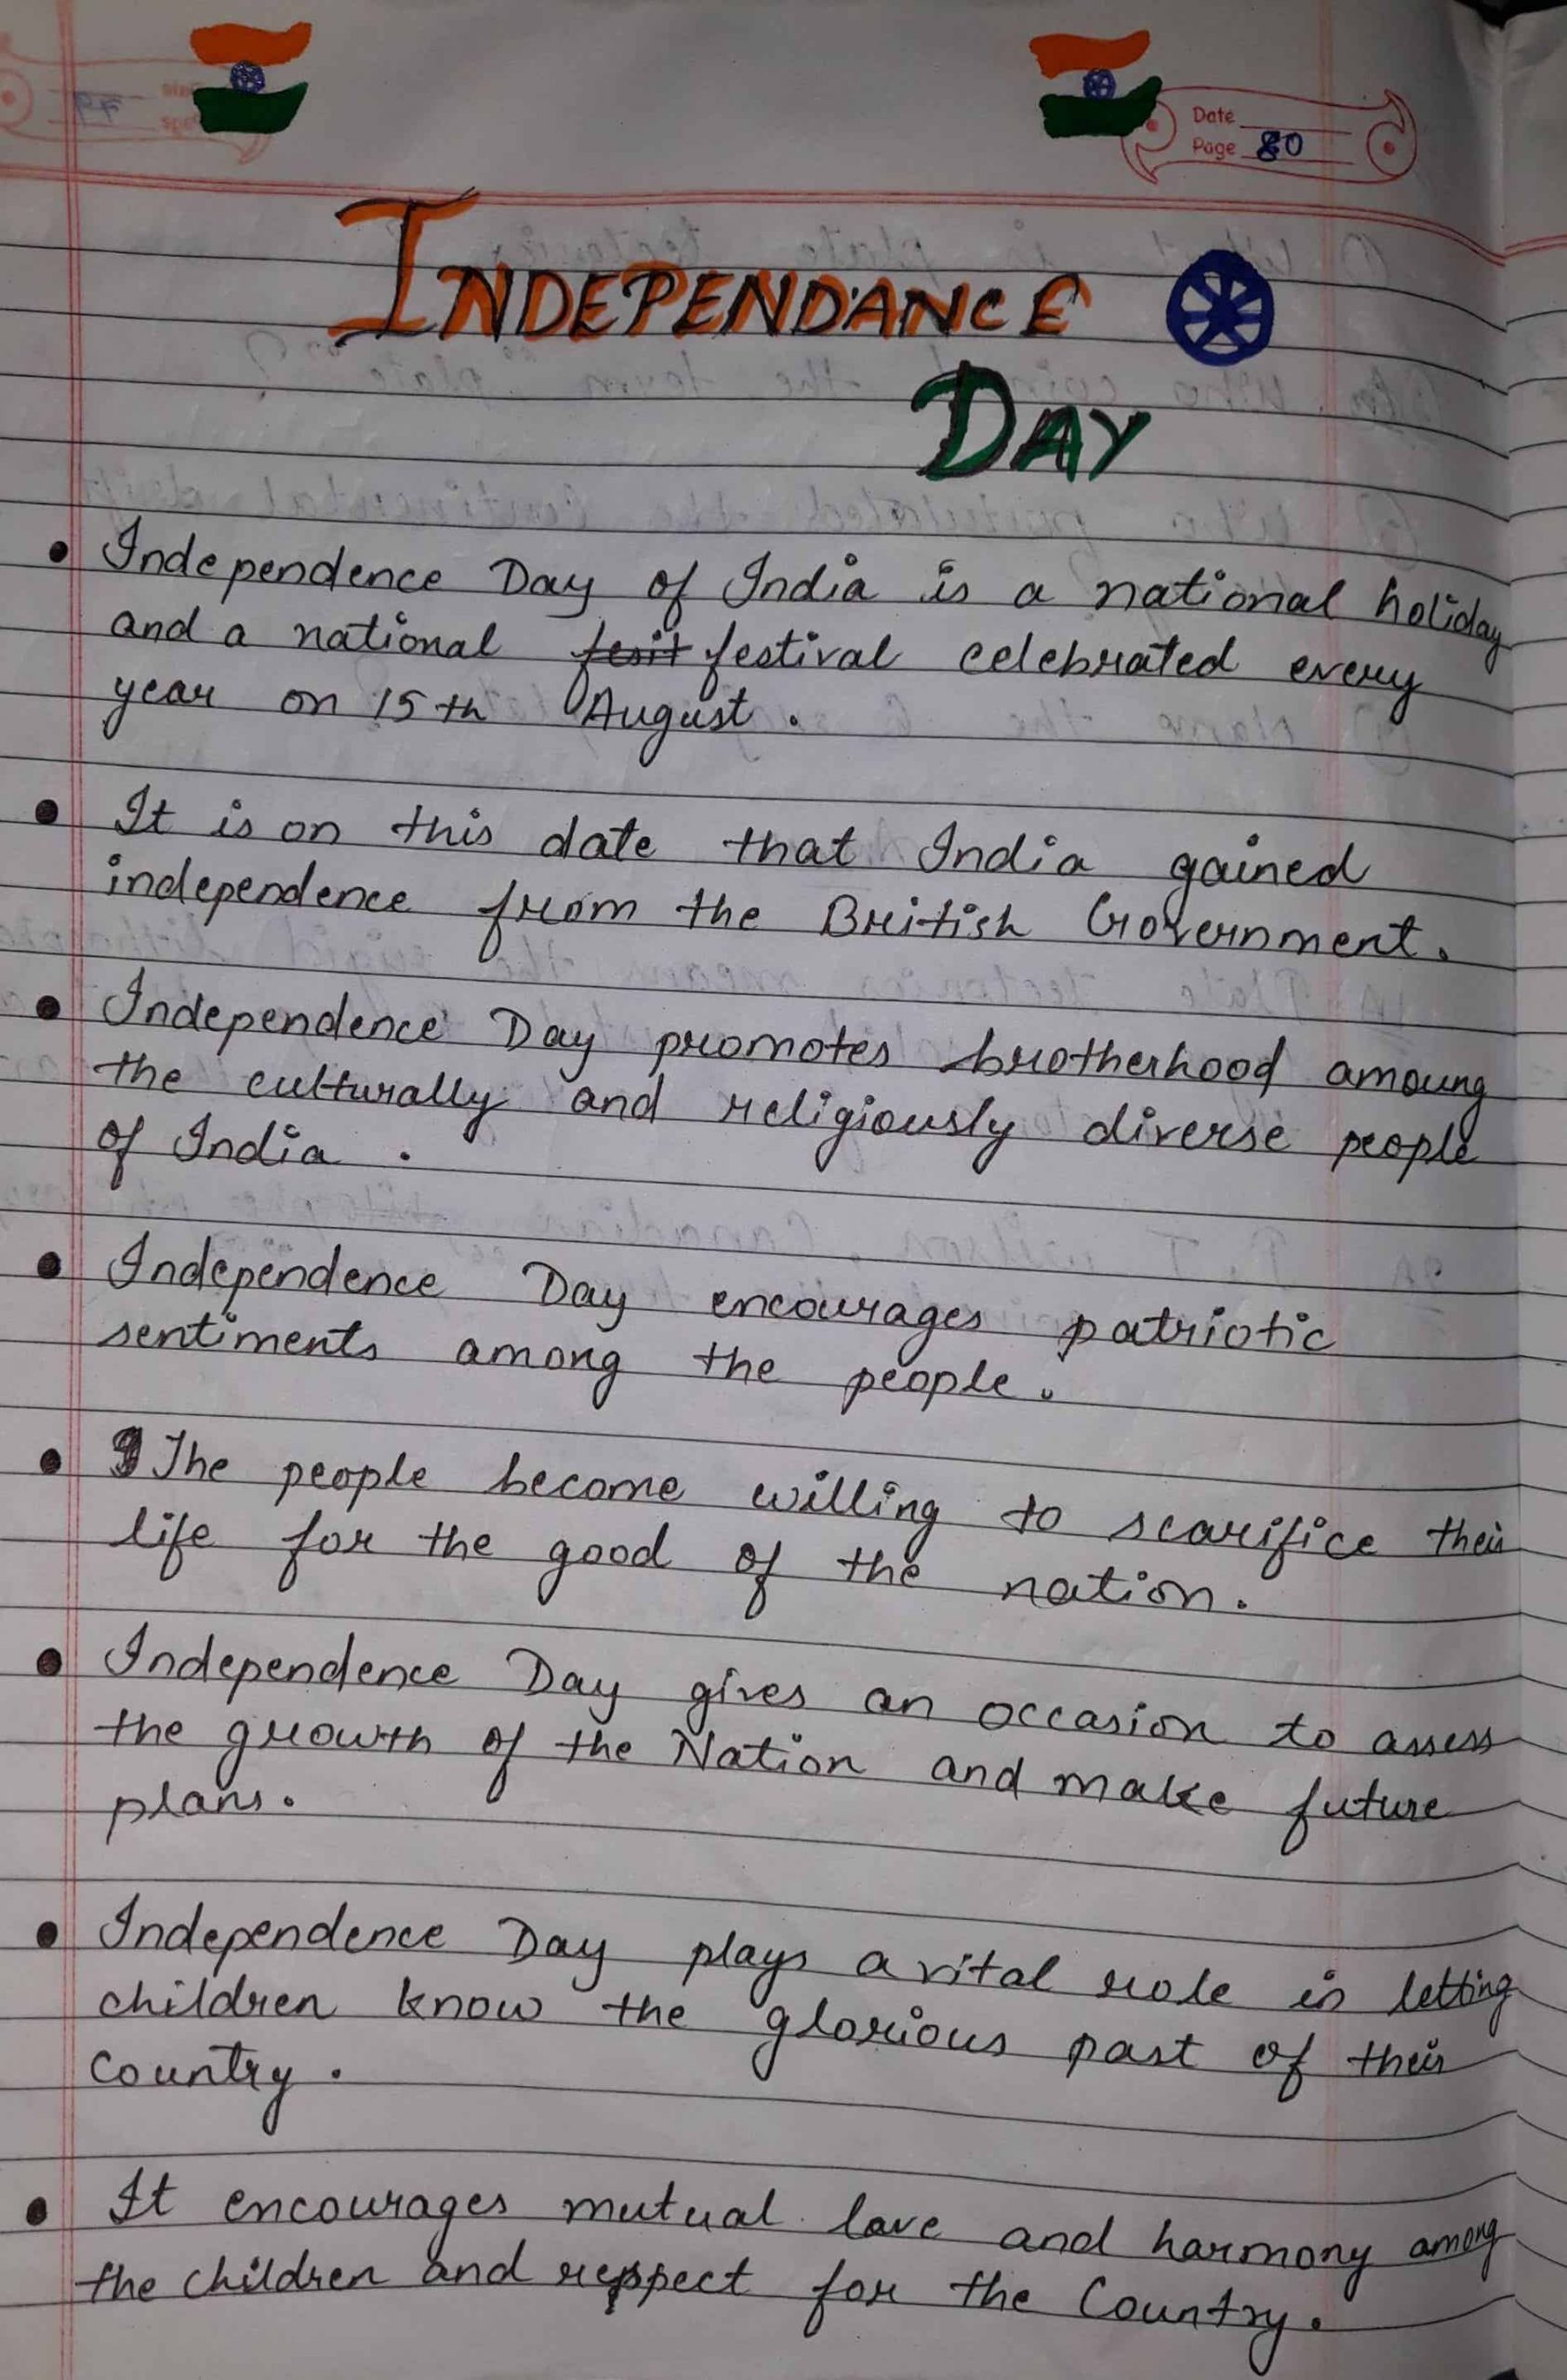 Date
Page 80
INDEPENDANCE
DAY
• Independence Day of India is a national holiday
and a national fesit festival celebrated every
year on 15th August.
• It is on this date that India gained
independence from the British Government.
• Independence Day promotes brotherhood amoung
the culturally and religiously diverse people
of India.
• Independence Day encourages patriotic
sentiments among the people.
• The people become willing to scarifice their
life for the good of the nation.
• Independence Day gives an occasion to assess
the growth of the Nation and make future
plans.
• Independence Day plays a vital role in letting
children know the glorious past of their
Country.
• It encourages mutual love and harmony among
the children and respect for the Country.